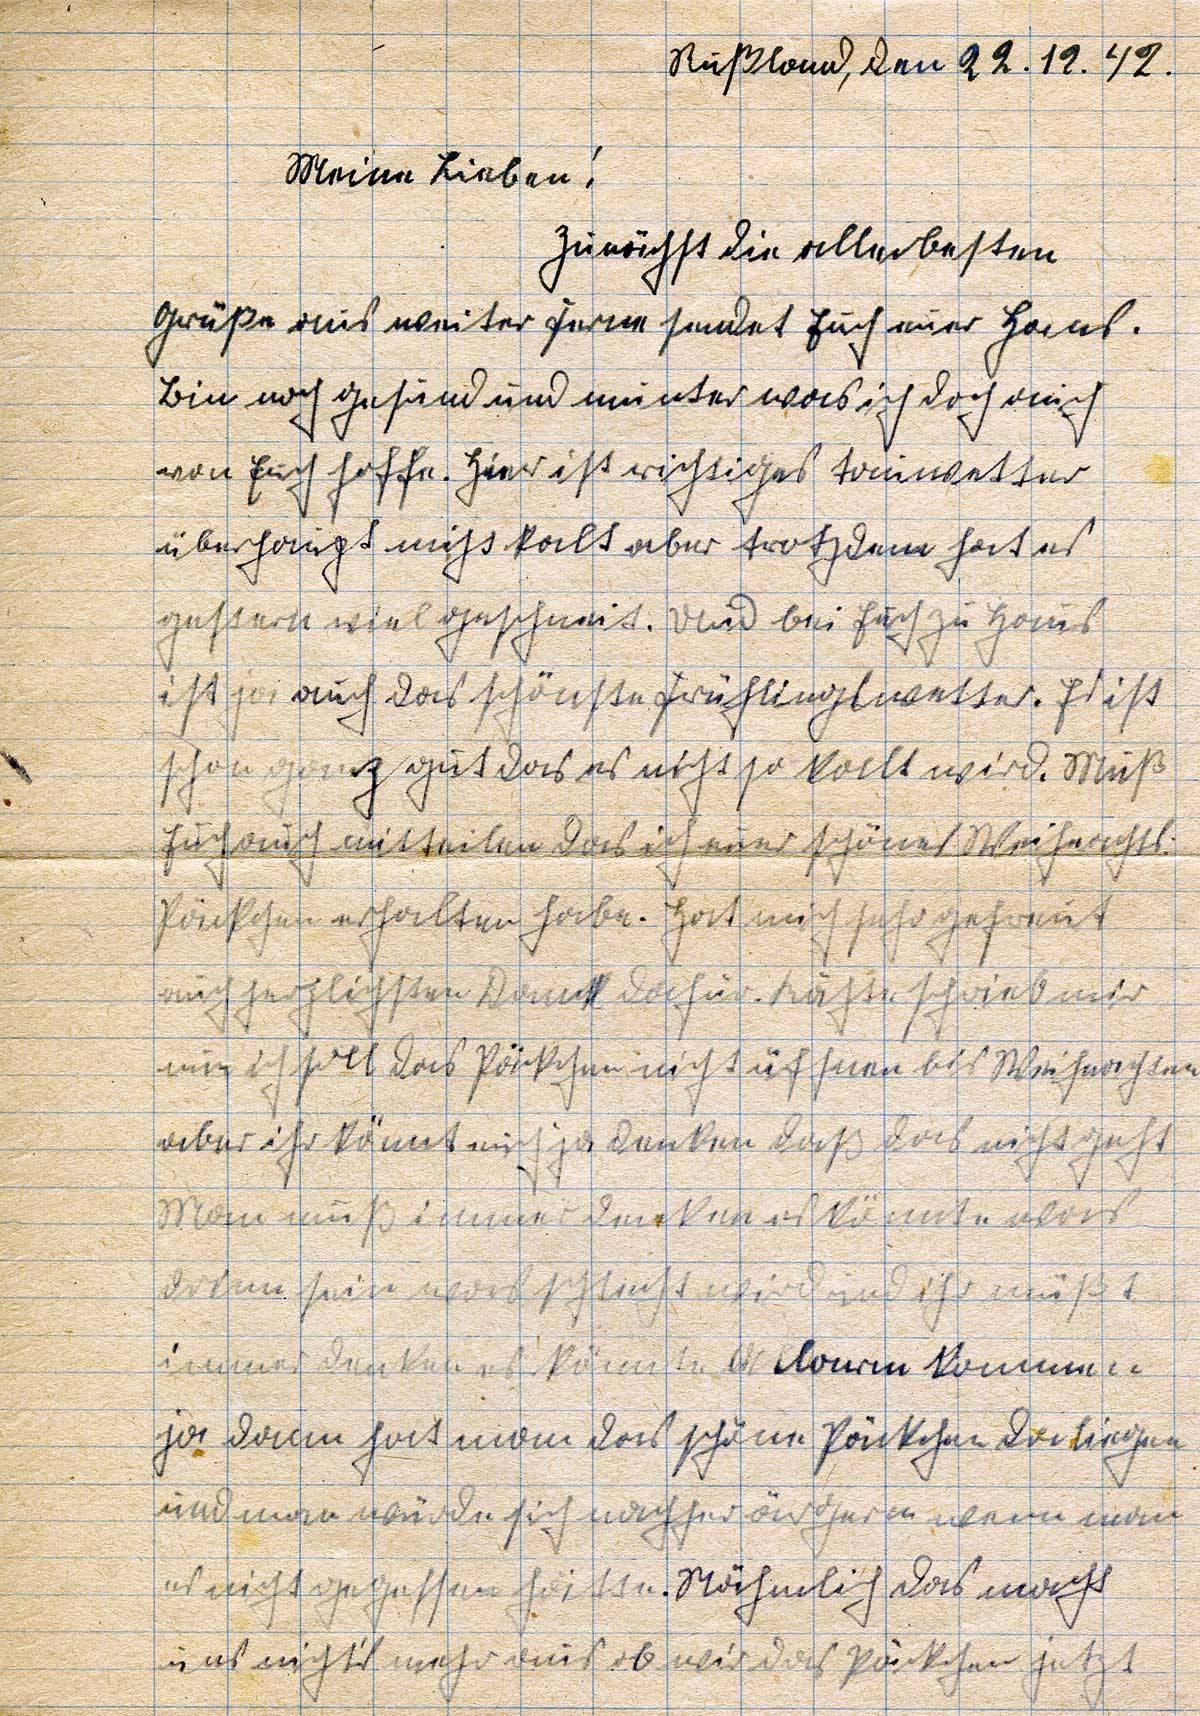 Rußland, den 22.12.42.
Meine Lieben!
Zunächst die allerbesten
Grüße aus weiter Ferne sendet Euch euer Hans.
Bin noch gesund und munter was ich doch auch
von Euch hoffe. Hier ist richtiges Tauwetter
überhaupt nicht kalt aber trotzdem hat es
gestern viel geschneit. Und bei Euch zu Haus
ist ja auch das schönste Frühlingswetter. Es ist
schon ganz gut das es nicht so kalt wird. Muß
Euch auch mitteilen das ich euer schönes Weihnachts-
Päckchen erhalten habe. Hat mich sehr gefreut
auch herzlichsten Dank dafür. Käthe schrieb mir
nun ich soll das Päckchen nicht öffnen bis Weihnachten
aber ihr könnt euch ja denken daß das nicht geht
Man muß immer denken es könnte was
drinn sein was schlecht wird und ihr müßt
immer denken es könnte Alarm kommen
ja dann hat man das schöne Päckchen da liegen
und man würde sich nachher ärgern wenn man
es nicht gegessen hätte. Nähmlich das macht
uns nicht's mehr aus ob wir das Päckchen jetzt